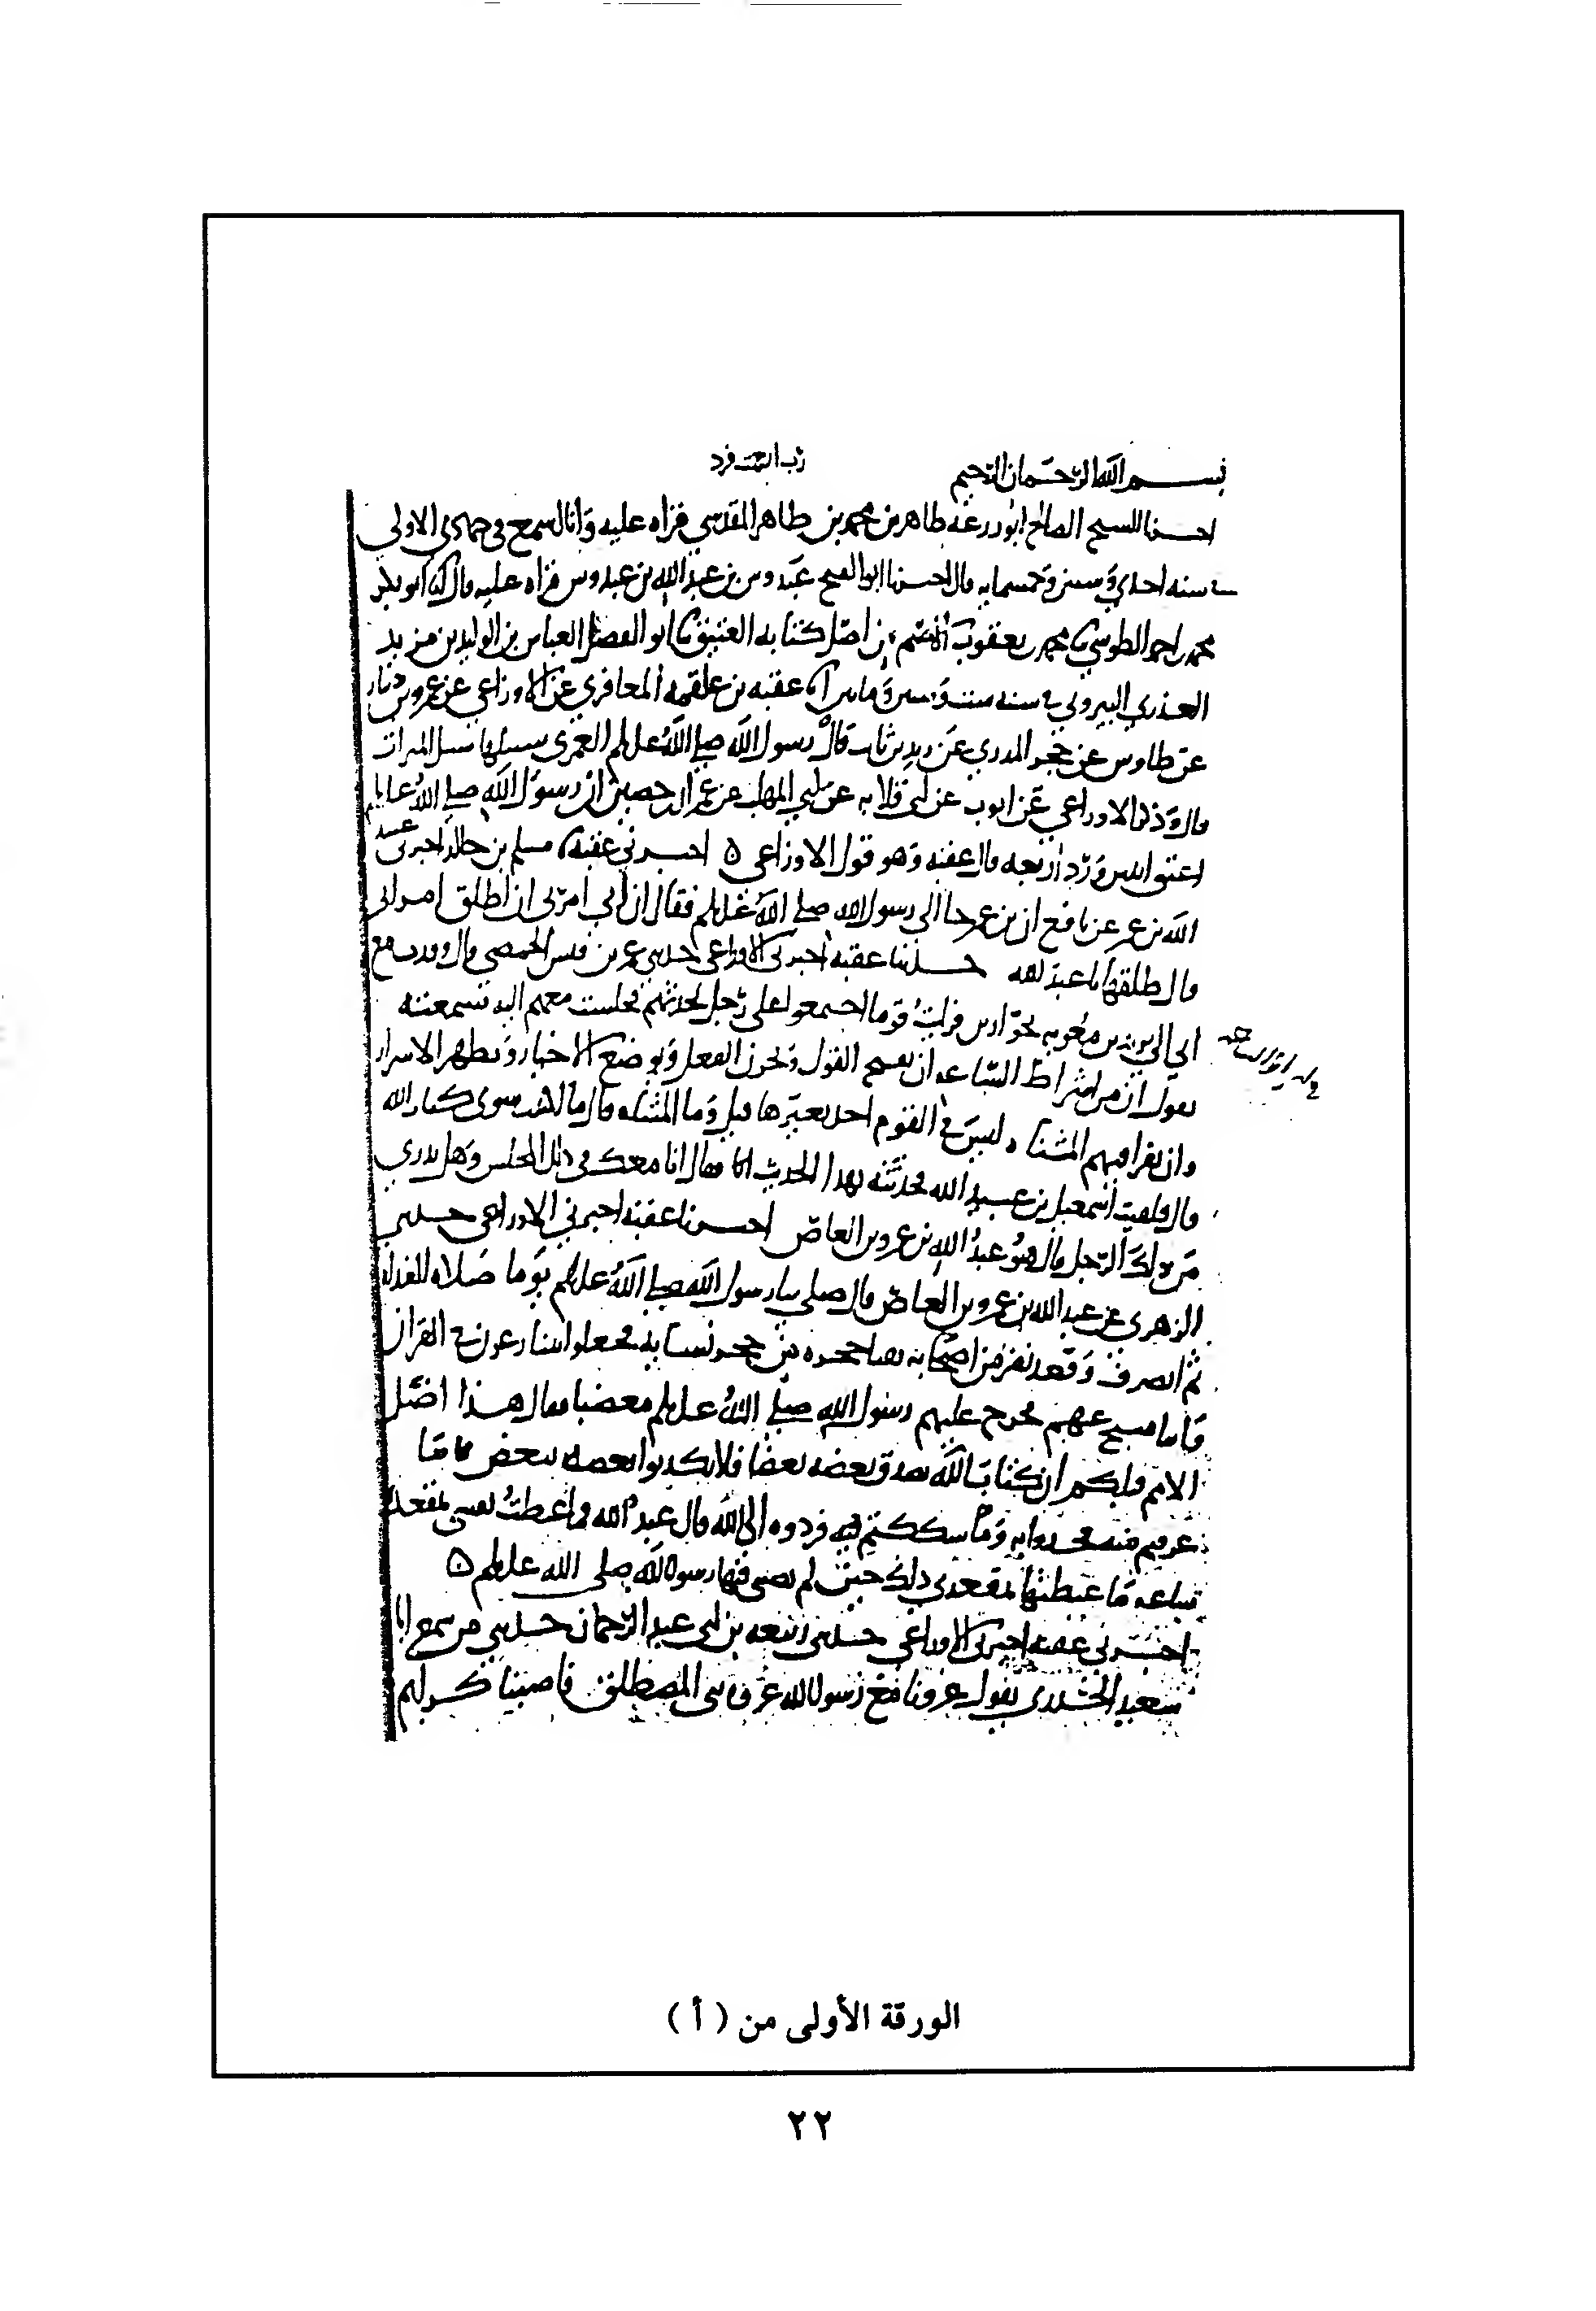 بسم الله الرحمان الرحيم رب انعمت فزد
اخبرنا الشيخ الصالح ابو زرعة طاهر بن محمد بن طاهر المقدسي قراه عليه وانا اسمع في جمادى الاولى
سنه احدى وستين وخمسمايه قال اخبرنا ابو الفتح عبدوس بن عبد الله بن عبدوس قراه عليه قال ابو بكر
محمد بن احمد الطوسي محمد بن يعقوب الاصم من اصل كتابه العتيق ابو الفضل العباس بن الوليد بن مزيد
العذري البيروتي سنه ست وستين ومايتين عقبه بن علقمه المعافري عن الاوزاعي عن عمرو بن دينار
عن طاوس عن حجر المدري عن زيد بن ثابت قال رسول الله صلى الله عليه وسلم العمرى سبيلها سبيل الميراث
قال وذكر الاوزاعي عن ايوب عن ابي قلابه عن ابي المهلب عن عمران بن حصين ان رسول الله صلى الله عليه وسلم
اعتق اثنين ورد اربعه قال عقبه وهو قول الاوزاعي ه اخبرني عقبه مسلم بن خالد اخبرني عبيد
الله بن عمر عن نافع ان بن عمر جا الى رسول الله صلى الله عليه وسلم فقال ان ابي امرني ان اطلق امراتي
قال طلقها يا عبد الله حدثنا عقبه اخبرني الاوزاعي حدثني عمرو بن قيس الحمصي قال وفدت مع
ابي الى يزيد بن معويه بحوارين فرايت قوما اجتمعوا على رجل يحدثهم فجلست معهم اليه فسمعته
يقول ان من اشراط الساعه ان يفتح القول ويخزن الفعل ويوضع الاخيار وتظهر الاشرار
وان يقرا فيهم المثناه ليس في القوم احد يغيرها قيل وما المثناه قال ما اكتتب سوى كتاب الله
قال فلقيت اسمعيل بن عبيد الله فحدثته بهذا الحديث فقال انا معك في ذلك المجلس وهل تدري
من ذلك الرجل قال هو عبد الله بن عمرو بن العاص اخبرنا عقبه اخبرني الاوزاعي حدثني
الزهري عن عبد الله بن عمرو بن العاص قال صلى بنا رسول الله صلى الله عليه وسلم يوما صلاه الغداه
ثم انصرف وقعد نفر من اصحابه بفنا حجره من حجر نسايه فجعلوا يتنازعون في القران
فخرج عليهم رسول الله صلى الله عليه وسلم مغضبا فقال هذا اضل
الامم قبلكم ان كتاب الله يصدق بعضه بعضا فلا تكذبوا بعضه ببعض فما
عرفتم منه فخذوا به وما شككتم فيه فردوه الى الله قال عبد الله فما اغبطت نفسي بمقعد
ساعه ما غبطتها بمقعدي ذلك حين لم يصبني فيها رسول الله صلى الله عليه وسلم ه
اخبرني عقبه اخبرني الاوزاعي حدثني ربيعه بن ابي عبد الرحمان حدثني من سمع ابا
سعيد الخدري يقول غزونا مع رسول الله غزوه بني المصطلق فاصبنا كرايم
الورقة الأولى من ( أ )
٢٢